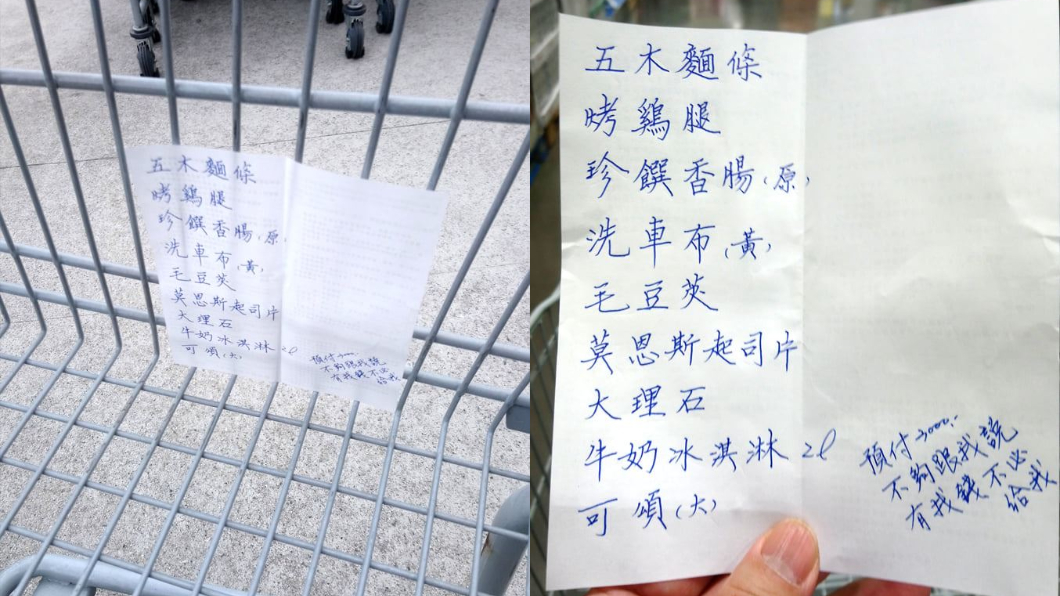 五木麵條
烤鷄腿
珍饌香腸(原)
洗車布(黃)
毛豆莢
莫恩斯起司片
大理石
牛奶冰淇淋 2l
可頌(大)
預付3000
不夠跟我說
有找錢不必
給我
五木麵條
烤鷄腿
珍饌香腸(原)
洗車布(黃)
毛豆莢
莫恩斯起司片
大理石
牛奶冰淇淋 2l
可頌(大)
預付3000.-
不夠跟我說
有找錢不必
給我